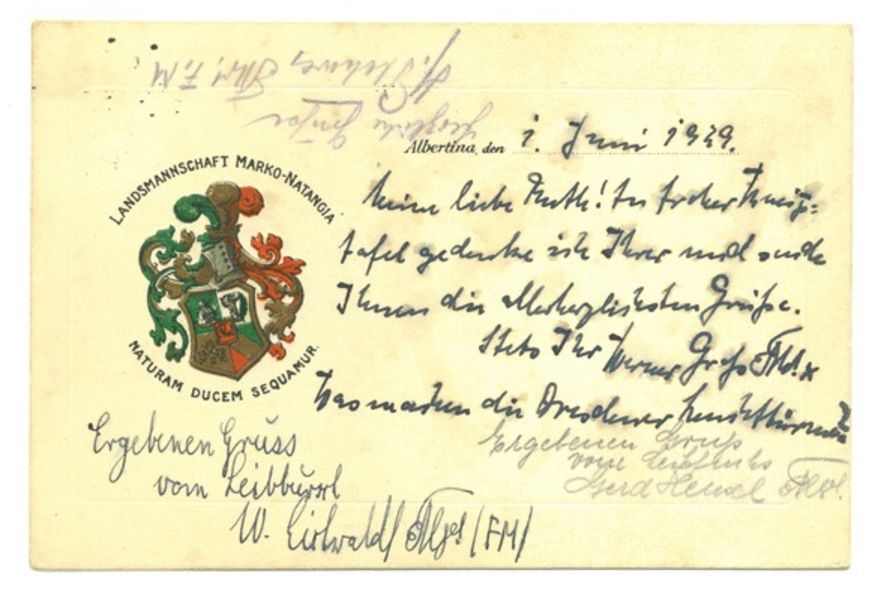 Herzliche Grüße
LANDSMANNSCHAFT MARKO-NATANGIA
NATURAM DUCEM SEQUAMUR.
Albertina, den 1. Juni 1929.
Meine liebe Ruth! In froher Kneip-
tafel gedenke ich Ihrer und sende
Ihnen die allerherzlichsten Grüße.
Stets Ihr Werner Groß
Was machen die Dresdener
Ergebenen Gruss
vom Leibburschl
W.
(FM)
Ergebenen Gruß
vom Leibfuchs
Gerd Hensel